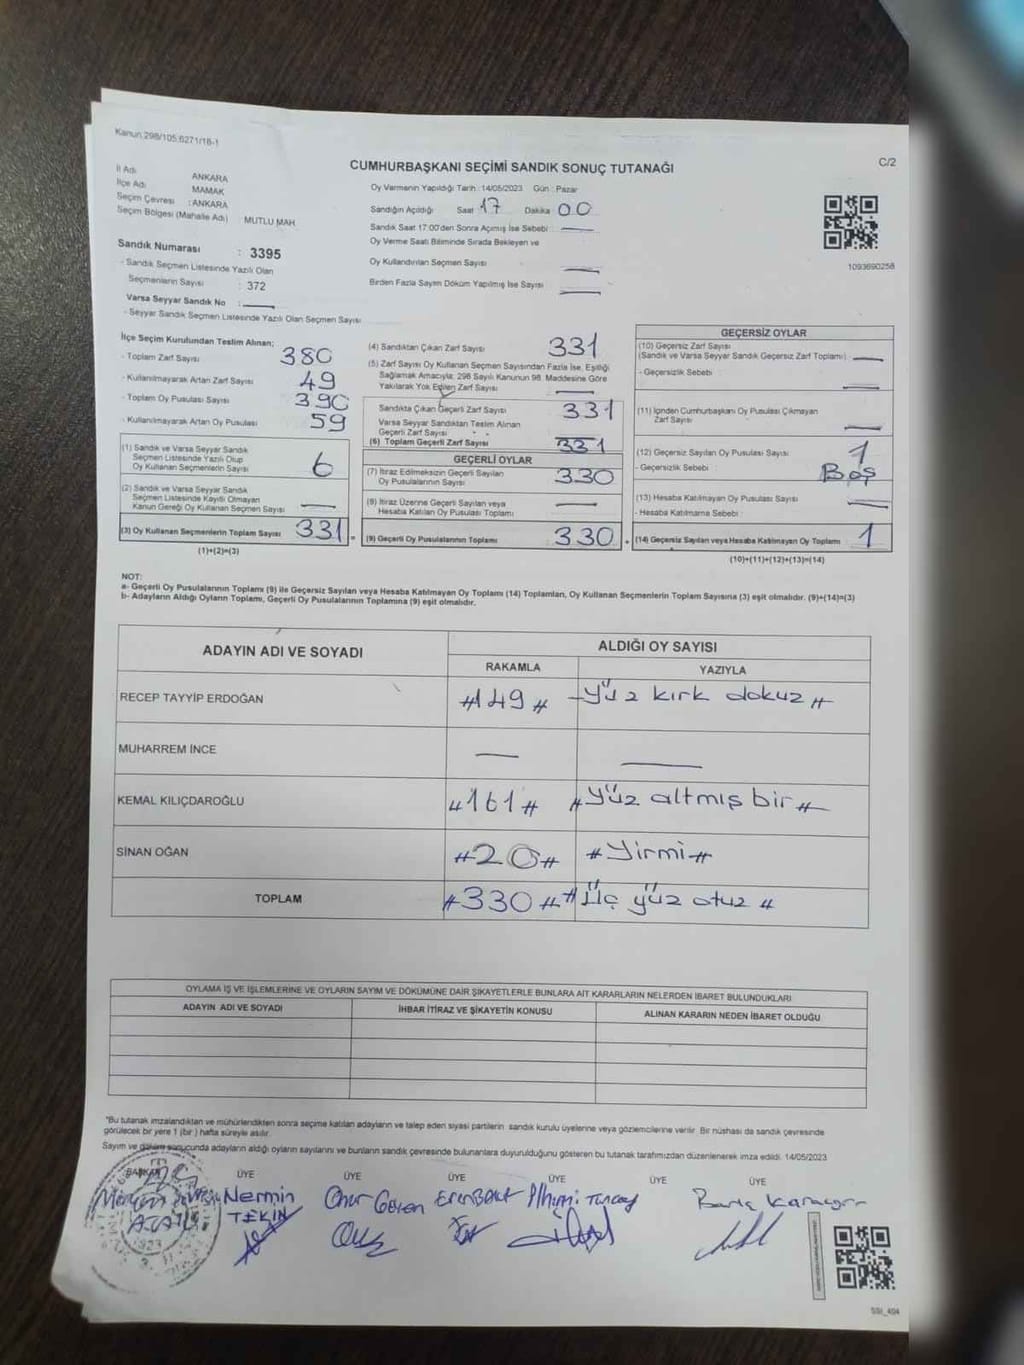 Kanun:298/105,6271/18-1
CUMHURBAŞKANI SEÇİMİ SANDIK SONUÇ TUTANAĞI
C/2
İl Adı ANKARA
İlçe Adı MAMAK
Seçim Çevresi : ANKARA
Seçim Bölgesi (Mahalle Adı) MUTLU MAH.
Sandık Numarası : 3395
- Sandık Seçmen Listesinde Yazılı Olan
Seçmenlerin Sayısı : 372
Varsa Seyyar Sandık No :
- Seyyar Sandık Seçmen Listesinde Yazılı Olan Seçmen Sayısı
Oy Vermenin Yapıldığı Tarih : 14/05/2023 Gün : Pazar
Sandığın Açıldığı Saat 17 Dakika 00
Sandık Saat 17:00'den Sonra Açılmış İse Sebebi
Oy Verme Saati Bitiminde Sırada Bekleyen ve
Oy Kullandırılan Seçmen Sayısı
Birden Fazla Sayım Döküm Yapılmış İse Sayısı
1093690258
İlçe Seçim Kurulundan Teslim Alınan;
- Toplam Zarf Sayısı 380
- Kullanılmayarak Artan Zarf Sayısı 49
- Toplam Oy Pusulası Sayısı 390
- Kullanılmayarak Artan Oy Pusulası 59
(1) Sandık ve Varsa Seyyar Sandık
Seçmen Listesinde Yazılı Olup
Oy Kullanan Seçmenlerin Sayısı 6
(2) Sandık ve Varsa Seyyar Sandık
Seçmen Listesinde Kayıtlı Olmayan
Kanun Gereği Oy Kullanan Seçmen Sayısı
(3) Oy Kullanan Seçmenlerin Toplam Sayısı 331 =
(1)+(2)=(3)
(4) Sandıktan Çıkan Zarf Sayısı 331
(5) Zarf Sayısı Oy Kullanan Seçmen Sayısından Fazla İse, Eşitliği
Sağlamak Amacıyla; 298 Sayılı Kanunun 98. Maddesine Göre
Yakılarak Yok Edilen Zarf Sayısı
Sandıkta Çıkan Geçerli Zarf Sayısı 331
Varsa Seyyar Sandıktan Teslim Alınan
Geçerli Zarf Sayısı
(6) Toplam Geçerli Zarf Sayısı 331
GEÇERLİ OYLAR
(7) İtiraz Edilmeksizin Geçerli Sayılan
Oy Pusulalarının Sayısı 330
(8) İtiraz Üzerine Geçerli Sayılan veya
Hesaba Katılan Oy Pusulası Toplamı
(9) Geçerli Oy Pusulalarının Toplamı 330 +
GEÇERSİZ OYLAR
(10) Geçersiz Zarf Sayısı
(Sandık ve Varsa Seyyar Sandık Geçersiz Zarf Toplamı)
- Geçersizlik Sebebi
(11) İçinden Cumhurbaşkanı Oy Pusulası Çıkmayan
Zarf Sayısı
(12) Geçersiz Sayılan Oy Pusulası Sayısı 1
- Geçersizlik Sebebi : Boş
(13) Hesaba Katılmayan Oy Pusulası Sayısı
- Hesaba Katılmama Sebebi :
(14) Geçersiz Sayılan veya Hesaba Katılmayan Oy Toplamı 1
(10)+(11)+(12)+(13)=(14)
NOT:
a- Geçerli Oy Pusulalarının Toplamı (9) ile Geçersiz Sayılan veya Hesaba Katılmayan Oy Toplamı (14) Toplamları, Oy Kullanan Seçmenlerin Toplam Sayısına (3) eşit olmalıdır. (9)+(14)=(3)
b- Adayların Aldığı Oyların Toplamı, Geçerli Oy Pusulalarının Toplamına (9) eşit olmalıdır.
ADAYIN ADI VE SOYADI ALDIĞI OY SAYISI
RAKAMLA YAZIYLA
RECEP TAYYİP ERDOĞAN #149# yüz kırk dokuz #
MUHARREM İNCE
KEMAL KILIÇDAROĞLU #161# #yüz altmış bir#
SİNAN OĞAN #20# #yirmi#
TOPLAM #330# #üç yüz otuz #
OYLAMA İŞ VE İŞLEMLERİNE VE OYLARIN SAYIM VE DÖKÜMÜNE DAİR ŞİKAYETLERLE BUNLARA AİT KARARLARIN NELERDEN İBARET BULUNDUKLARI
ADAYIN ADI VE SOYADI İHBAR İTİRAZ VE ŞİKAYETİN KONUSU ALINAN KARARIN NEDEN İBARET OLDUĞU
*Bu tutanak imzalandıktan ve mühürlendikten sonra seçime katılan adayların ve talep eden siyasi partilerin sandık kurulu üyelerine veya gözlemcilerine verilir. Bir nüshası da sandık çevresinde
görülecek bir yere 1 (bir ) hafta süreyle asılır.
Sayım ve döküm sonucunda adayların aldığı oyların sayılarını ve bunların sandık çevresinde bulunanlara duyurulduğunu gösteren bu tutanak tarafımızdan düzenlenerek imza edildi. 14/05/2023
BAŞKAN ÜYE ÜYE ÜYE ÜYE ÜYE ÜYE
Nermin Onur Gören Eren İlhami Tuncay Barış
TEKİN
SSI_404